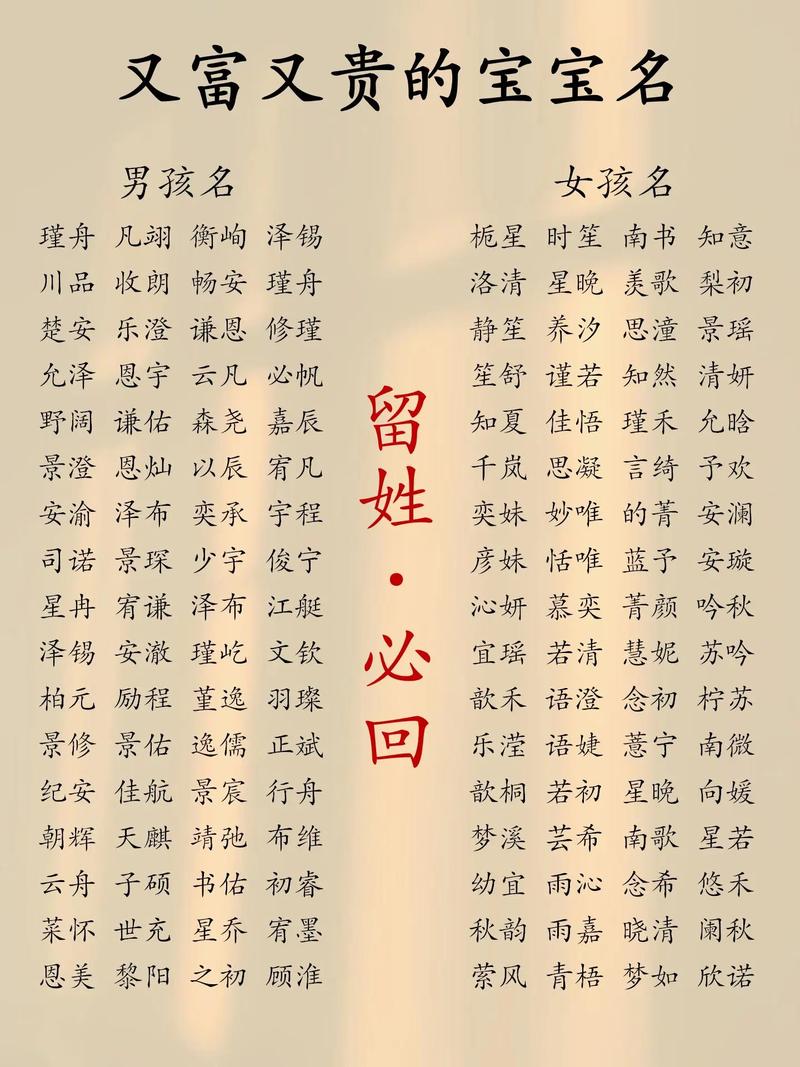 又富又贵的宝宝名
男孩名
瑾舟 凡翊 衡峋 泽锡
川品 收朗 畅安 瑾舟
楚安 乐澄 谦恩 修瑾
允泽 恩宇 云凡 必帆
野阔 谦佑 森尧 嘉辰
景澄 恩灿 以辰 宥凡
安渝 泽布 奕承 宇程
司诺 景琛 少宇 俊宁
星冉 宥谦 泽布 江艇
泽锡 安澈 瑾屹 文钦
柏元 励程 堇逸 羽璨
景修 景佑 逸儒 正斌
纪安 佳航 景宸 行舟
朝辉 天麒 靖弛 布维
云舟 子硕 书佑 初睿
菜怀 世充 星乔 宥墨
恩美 黎阳 之初 顾淮
留姓·必回
女孩名
栀星 时笙 南书 知意
洛清 星晚 羡歌 梨初
静笙 养汐 思潼 景瑶
笙舒 谨若 知然 清妍
知夏 佳悟 瑾禾 允晗
千岚 思凝 言绮 予欢
奕妹 妙唯 的菁 安澜
彦妹 恬唯 蓝予 安璇
沁妍 慕奕 菁颜 吟秋
宜瑶 若清 慧妮 苏吟
歆禾 语澄 念初 柠苏
乐滢 语婕 薏宁 南微
歆桐 若初 星晚 向媛
梦溪 芸希 南歌 星若
幼宜 雨沁 念希 悠禾
秋韵 雨嘉 晓清 阑秋
萦风 青梧 梦如 欣诺